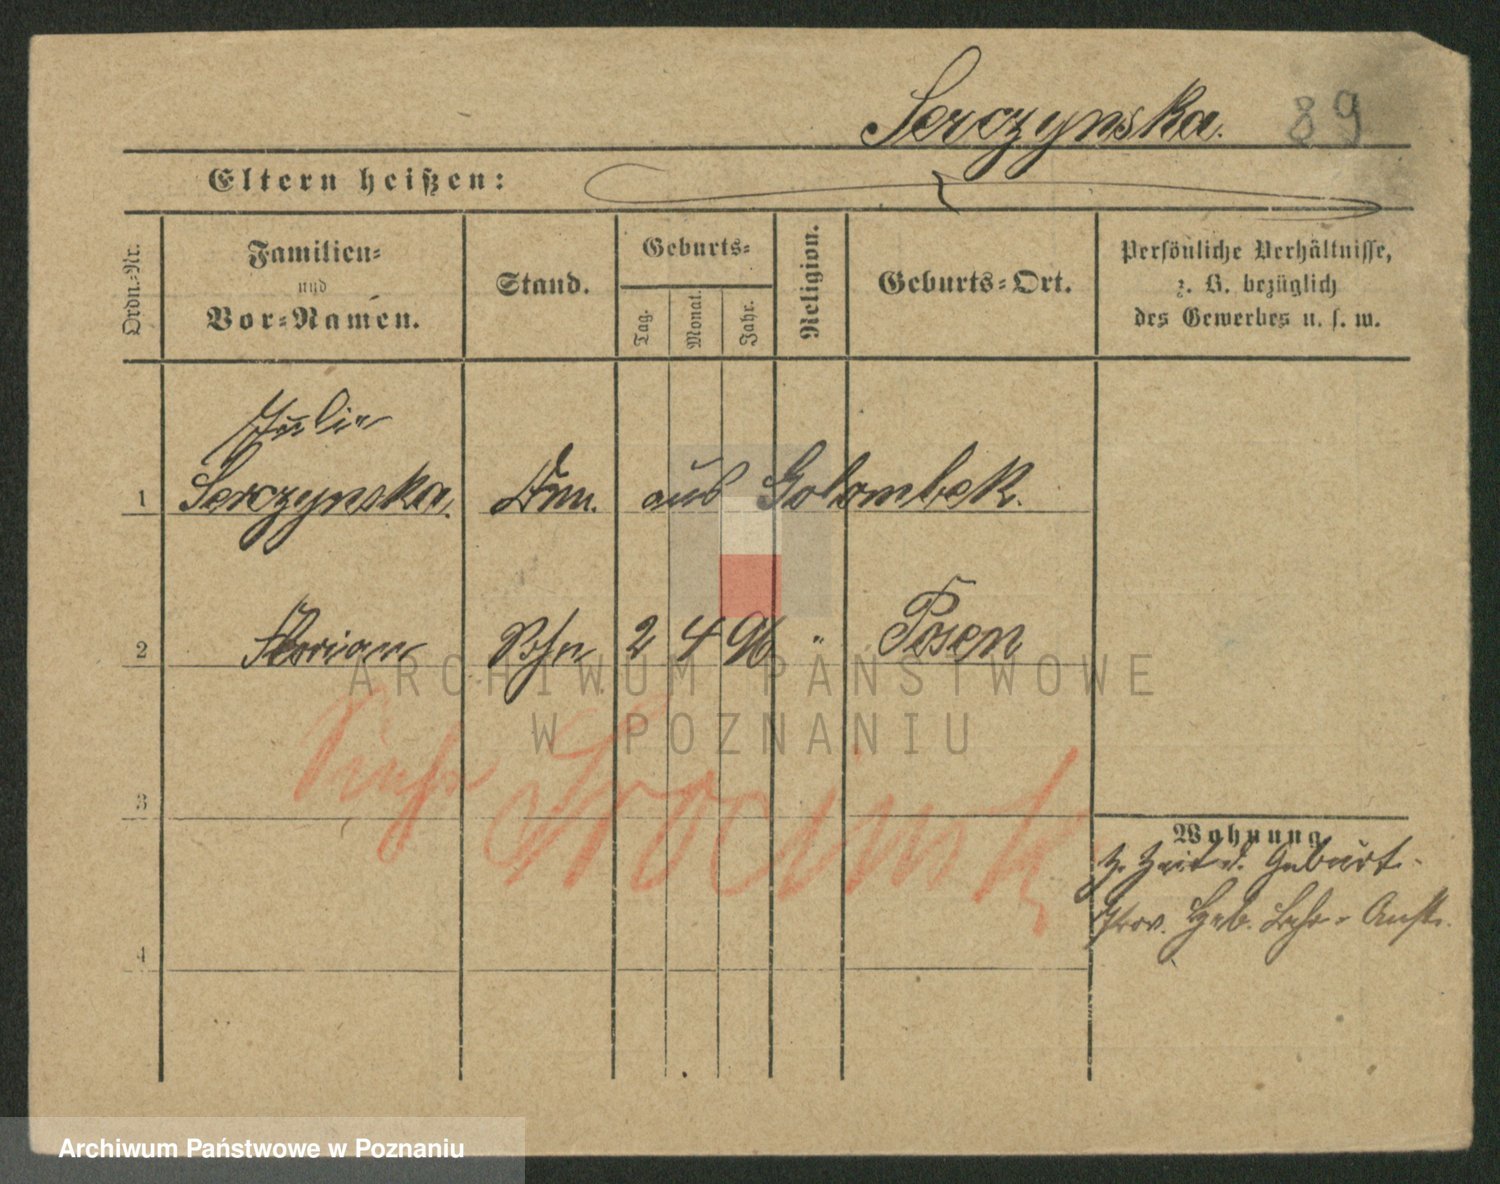 Serczynska. 89
Eltern heißen:
Ordn.-Nr.
Familien-
und
Vor-Namen.
Stand.
Geburts-
Tag.
Monat.
Jahr.
Religion.
Geburts-Ort.
Persönliche Verhältnisse,
z. B. bezüglich
des Gewerbes u. s. w.
Julie
1 Serczynska. aus Golombek.
2 Florian Sohn 2 4 96 " Posen
ARCHIWUM PAŃSTWOWE
W POZNANIU
Siehe
3
Wohnung
z. Zeit d. Geburt.
Prov. Heb. Lehr-Anst.
4
Archiwum Państwowe w Poznaniu